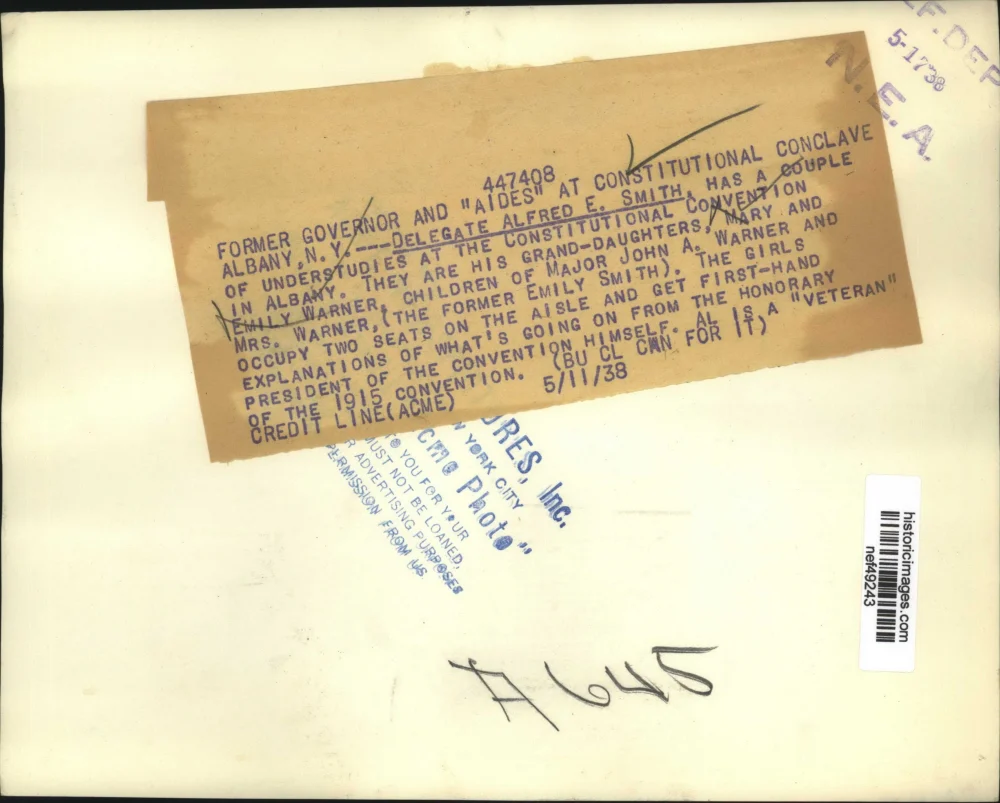 447408
FORMER GOVERNOR AND "AIDES" AT CONSTITUTIONAL CONCLAVE
ALBANY, N.Y.---DELEGATE ALFRED E. SMITH, HAS A COUPLE
OF UNDERSTUDIES AT THE CONSTITUTIONAL CONVENTION
IN ALBANY. THEY ARE HIS GRAND-DAUGHTERS, MARY AND
EMILY WARNER, CHILDREN OF MAJOR JOHN A. WARNER AND
MRS. WARNER,(THE FORMER EMILY SMITH). THE GIRLS
OCCUPY TWO SEATS ON THE AISLE AND GET FIRST-HAND
EXPLANATIONS OF WHAT'S GOING ON FROM THE HONORARY
PRESIDENT OF THE CONVENTION HIMSELF. AL IS A "VETERAN"
OF THE 1915 CONVENTION. (BU CL CAN FOR IT)
CREDIT LINE(ACME) 5/11/38
F. DEP
5-17'38
N. E. A.
URES, Inc.
YORK CITY
cme Photo"
TO YOU FOR YOUR
MUST NOT BE LOANED,
R ADVERTISING PURPOSES
PERMISSION FROM US
A645
historicimages.com
nef49243